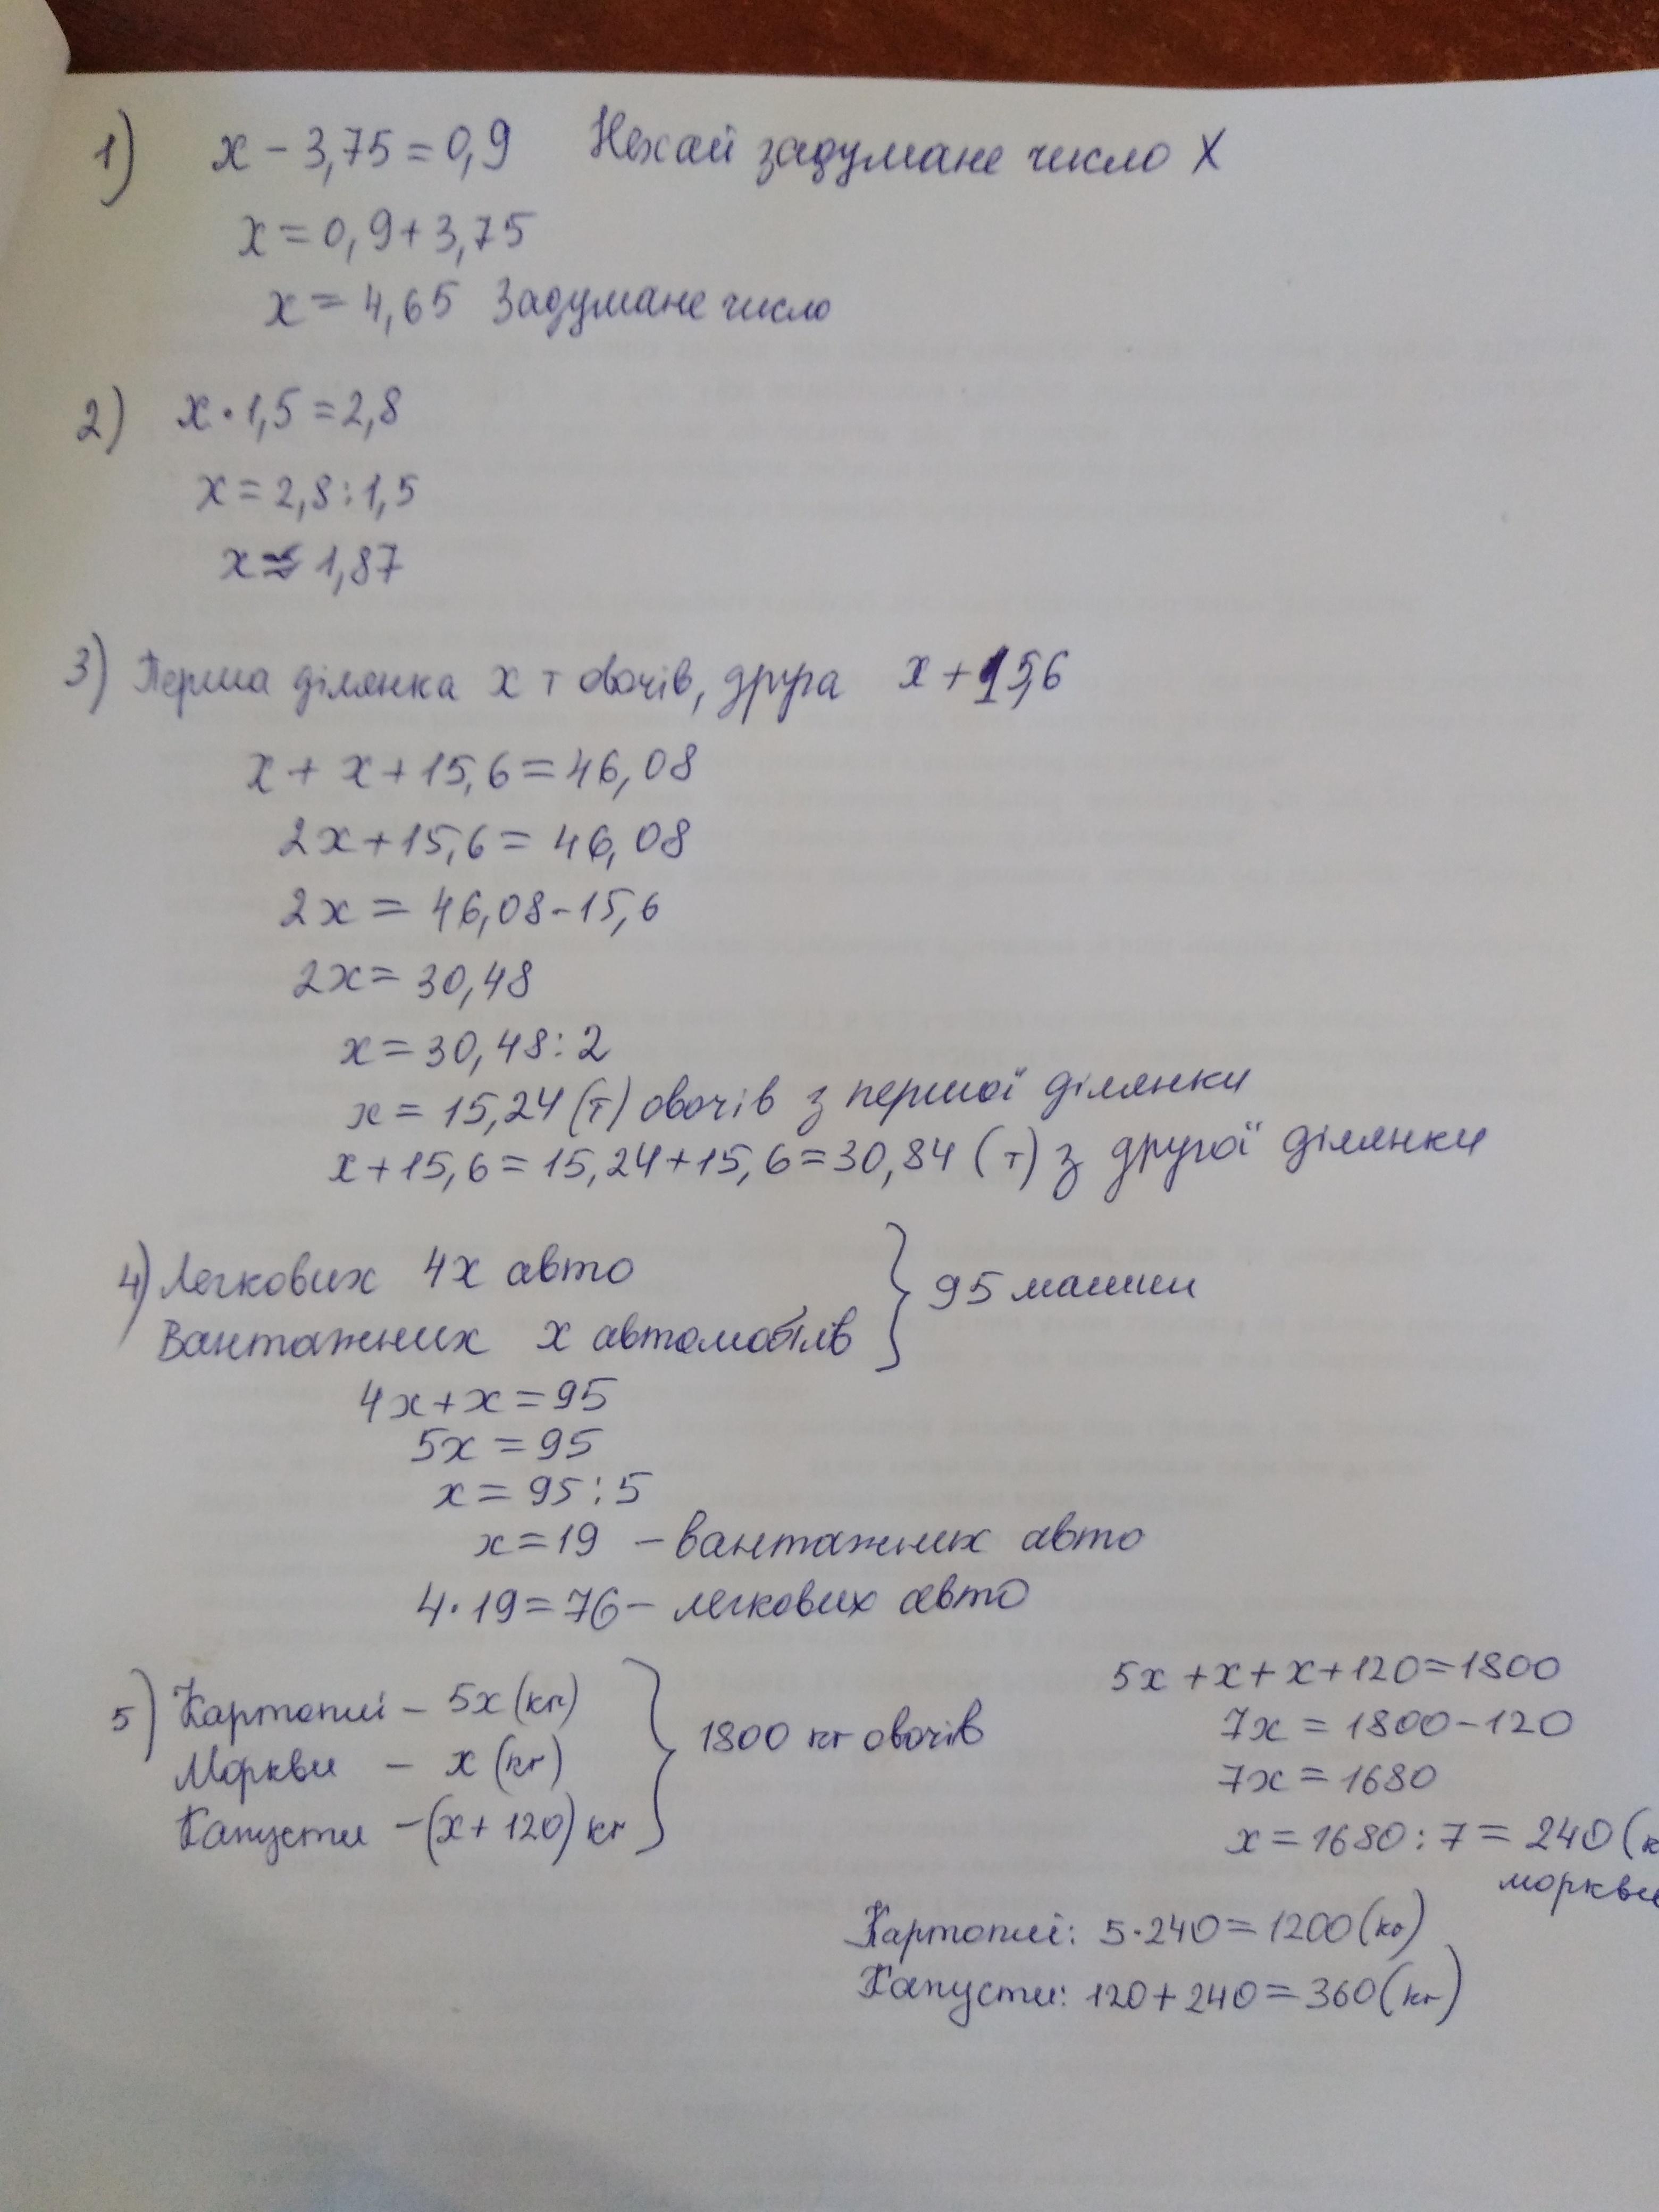 1) x - 3,75 = 0,9 Нехай задумане число X
x = 0,9 + 3,75
x = 4,65 Задумане число
2) x · 1,5 = 2,8
x = 2,8 : 1,5
x ≈ 1,87
3) Перша ділянка x т овочів, друга x + 15,6
x + x + 15,6 = 46,08
2x + 15,6 = 46,08
2x = 46,08 - 15,6
2x = 30,48
x = 30,48 : 2
x = 15,24 (т) овочів з першої ділянки
x + 15,6 = 15,24 + 15,6 = 30,84 (т) з другої ділянки
4) Легкових 4x авто
Вантажних x автомобілів } 95 машин
4x + x = 95
5x = 95
x = 95 : 5
x = 19 - вантажних авто
4 · 19 = 76 - легкових авто
5) Картоплі - 5x (кг)
Моркви - x (кг)
Капусти - (x + 120) кг } 1800 кг овочів
5x + x + x + 120 = 1800
7x = 1800 - 120
7x = 1680
x = 1680 : 7 = 240 (к
моркви
Картоплі: 5 · 240 = 1200 (кг)
Капусти: 120 + 240 = 360 (кг)